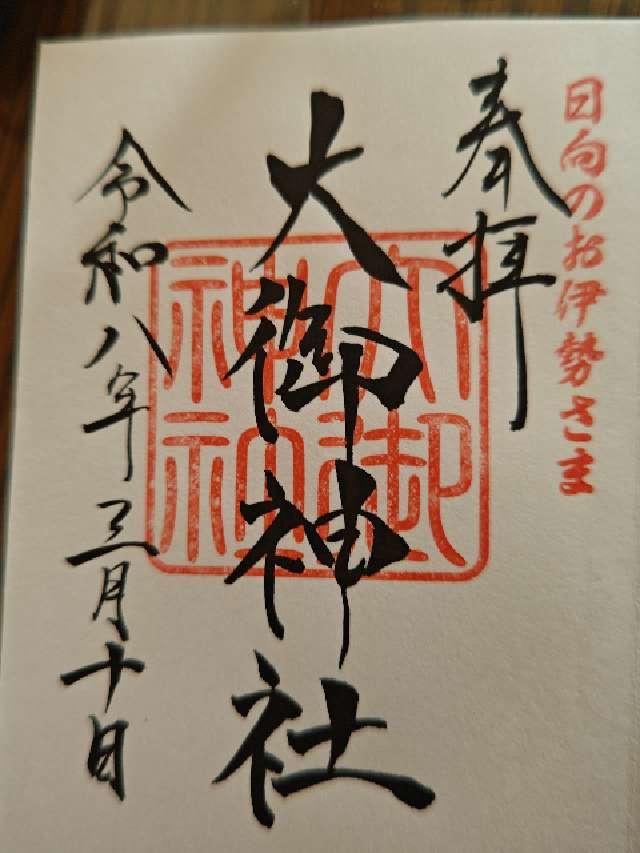 日向のお伊勢さま
奉拝
大御神社
大御神社
令和八年三月十日